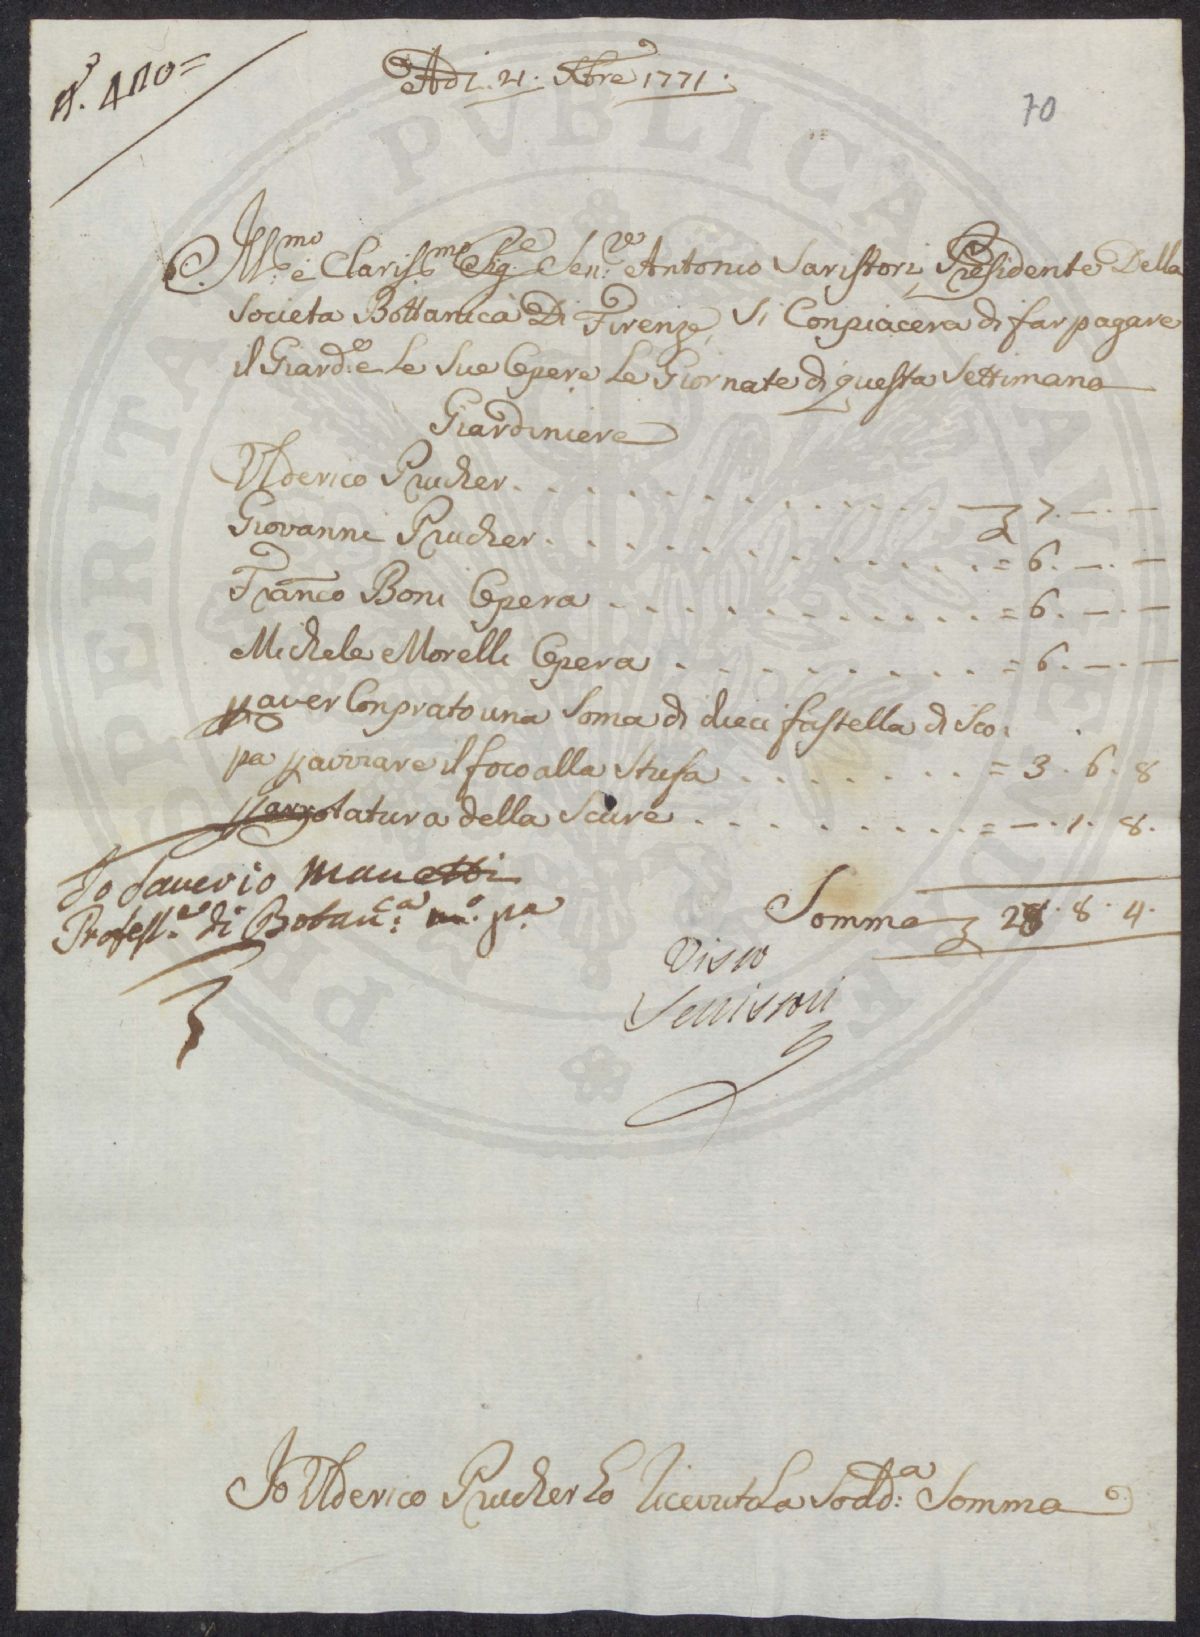 N.º 410=
Adi. 21. Xbre 1771.
70
Ill.mo e Clariss.mo Sig.e Sen.re Antonio Saristori Presidente Della
Societa Bottanica Di Firenze, Si Conpiacera di far pagare
il Giard.e e Le Sue Opere Le Giornate di questa Settimana
Giardiniere
Ulderico Prucher . . . . . . . . . . 7. — . —
Giovanni Prucher . . . . . . . . . . = 6. — . —
Franco Boni Opera . . . . . . . . . . = 6. — . —
Michele Morelli Opera . . . . . . . . . = 6. — . —
p aver Conprato una Soma di dieci fastella di Sco:
pa p avviare il foco alla Stufa . . . . . . . = 3. 6. 8
p arrotatura della Scure . . . . . . . . = —. 1. 8.
Io Saverio Manetti
Profess.re di Botan.ca m.o p.a
Somma 28. 8. 4.
Visto
Serristori
Io Ulderico Prucher ho Ricevuto La Sodd.a Somma
PVBLICA
PROSPERITAS